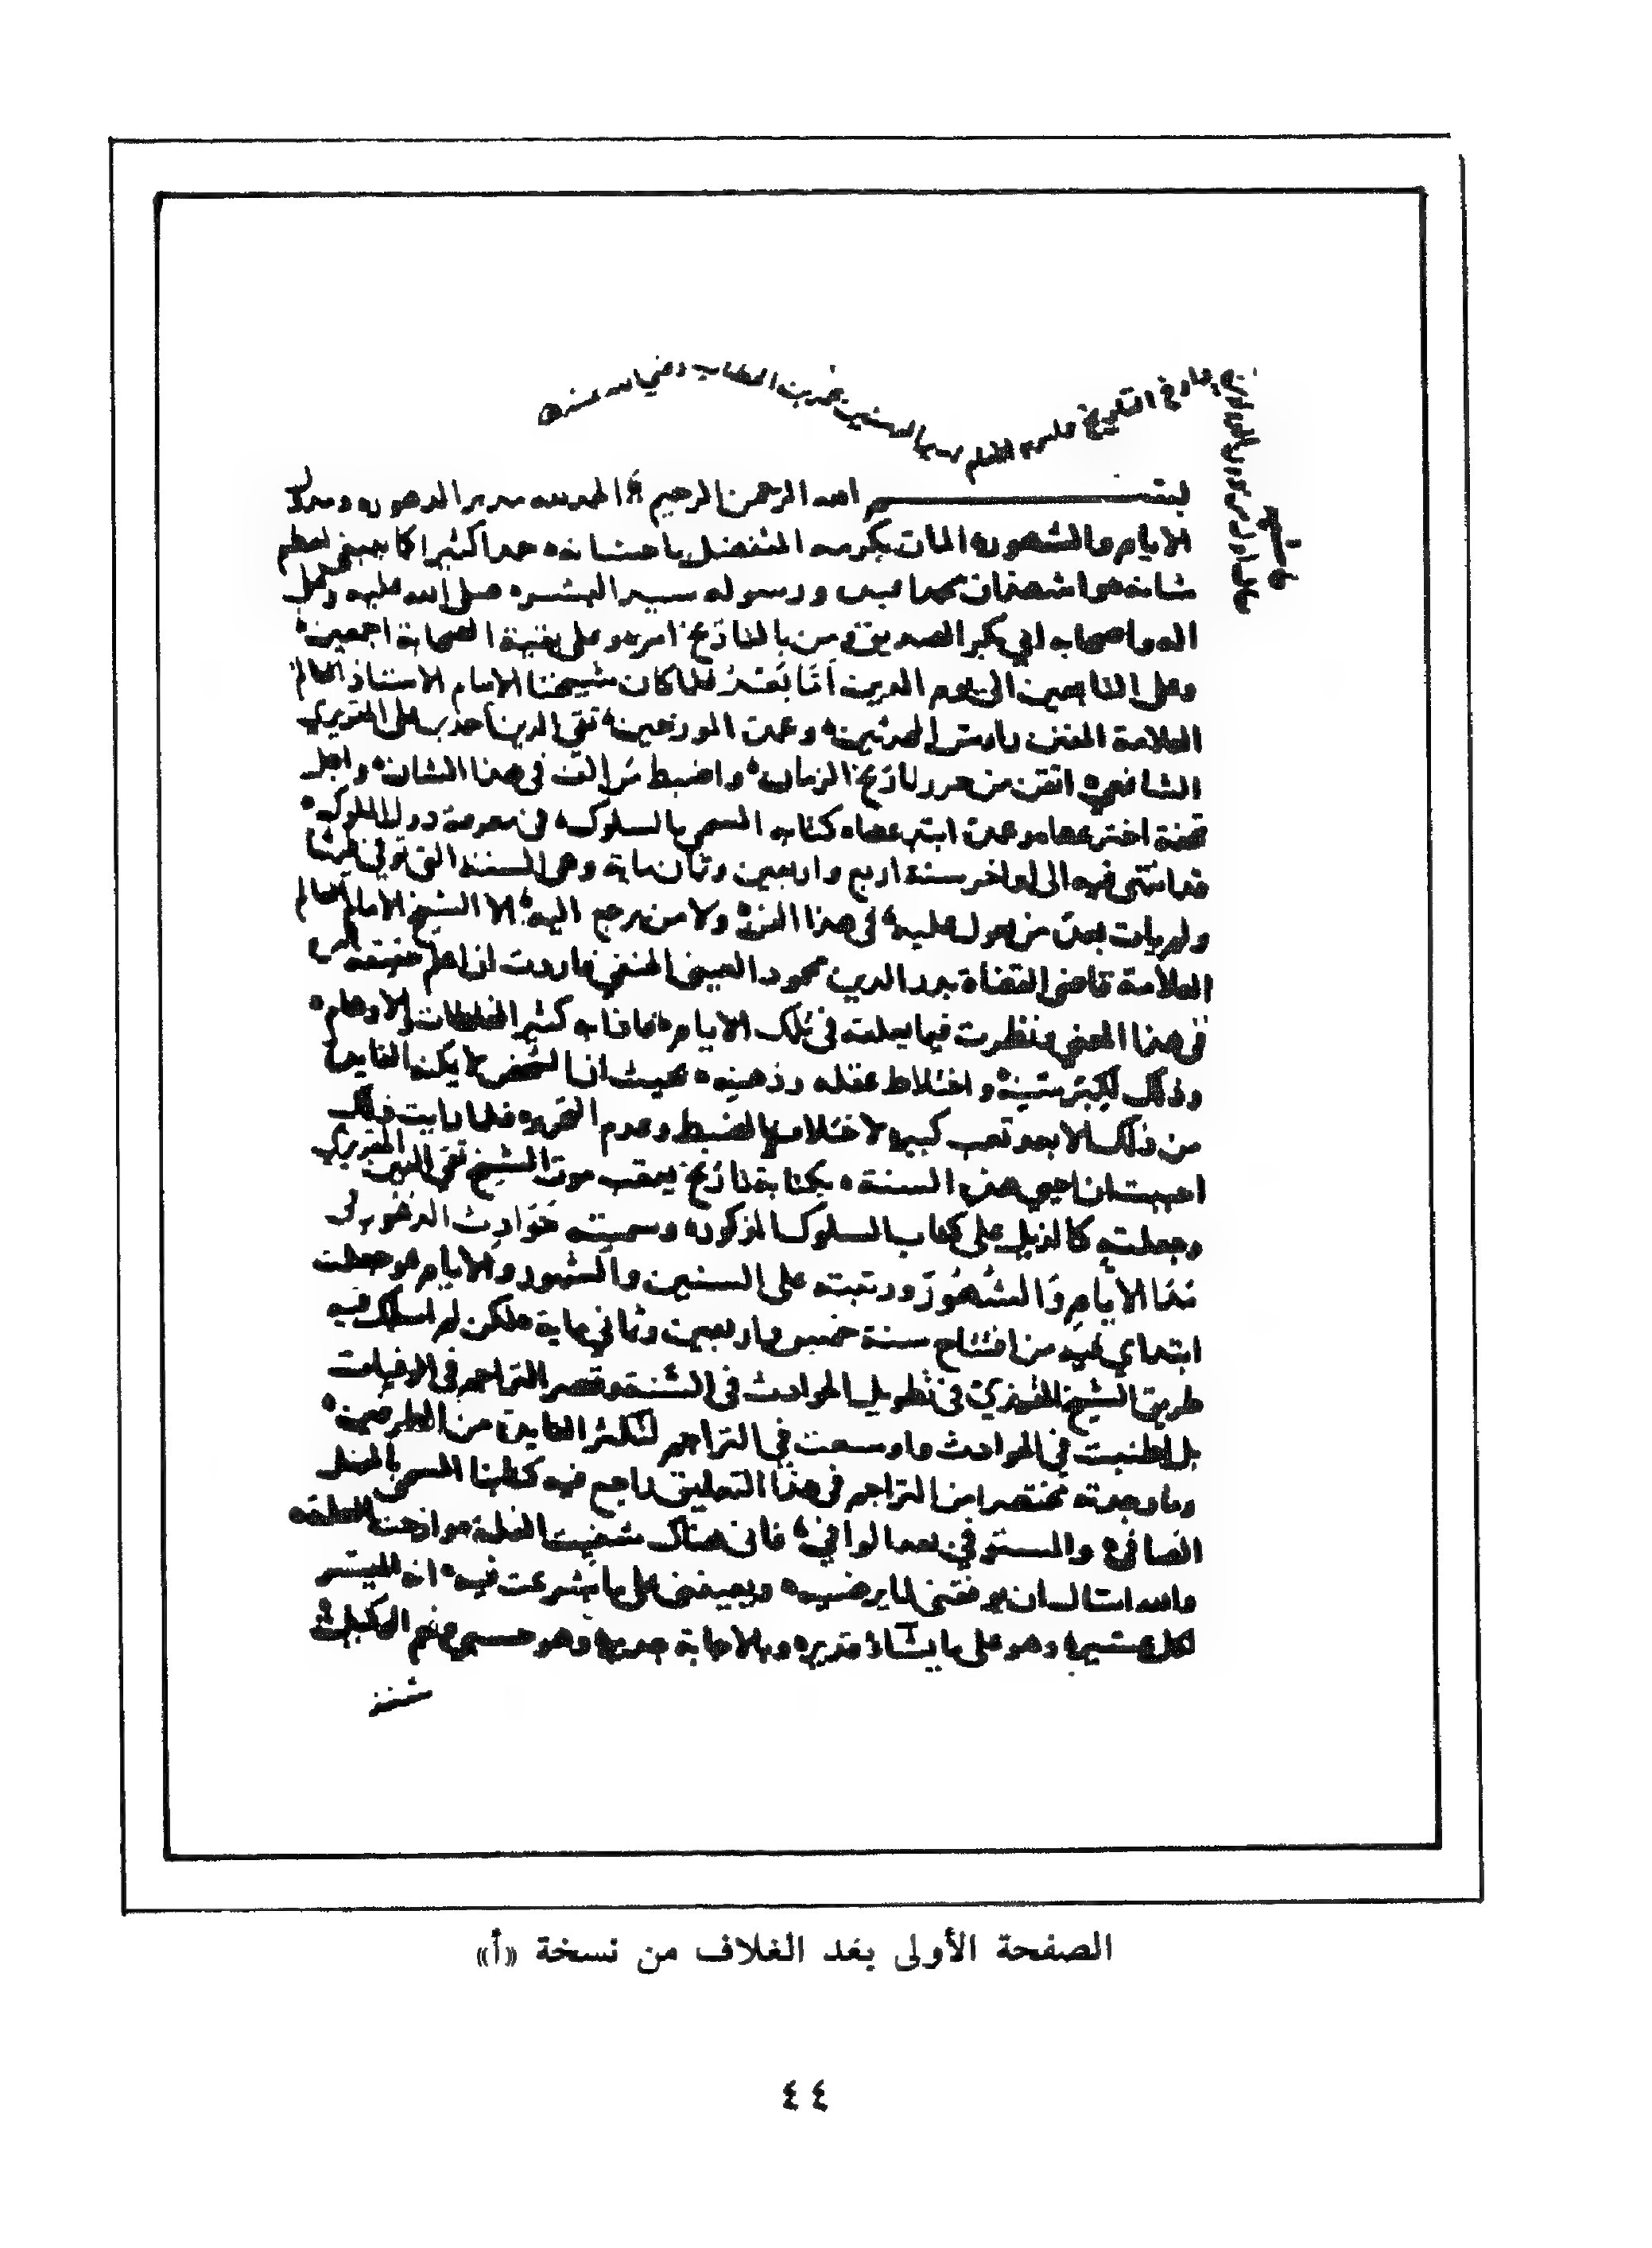 بسم الله الرحمن الرحيم الحمد لله مدبر الدهور ومدول
الايام والشهور المان بكرمه المتفضل باحسانه حمدا كثيرا كما ينبغي لعظم
شانه واشهد ان محمدا عبده ورسوله سيد البشر صلى الله عليه وعلى
اله واصحابه ابي بكر الصديق ومن بالتاريخ امر وعلى بقية الصحابة اجمعين
وعلى التابعين الى يوم الدين أمّا بَعْدُ فلما كان شيخنا الامام الاستاذ العالم
العلامة المفنن راس المحدثين وعمدة المورخين تقي الدين احمد بن علي المقريزي
الشافعي اتقن من حرر تاريخ الزمان واضبط من الف في هذا الشان واجل
تحفة اخترعها وعمدة ابتدعها كتابه المسمى بالسلوك في معرفة دول الملوك
قد انتهى فيه الى اواخر سنة اربع واربعين وثمان ماية وهي السنة التي توفي فيها
ولم يات بعده من يعول عليه في هذا الفن ولا من يرجع اليه الا الشيخ الامام العالم
العلامة قاضي القضاة بدر الدين محمود العيني الحنفي فاردت ان اعلم حقيقة
في هذا المعنى ونظرت فيما يعلقه في تلك الايام فاذا به كثير الغلطات والاوهام
وذلك لكبر سنه واختلاط عقله وذهنه بحيث ان الشخص لا يمكنه الفايدة
من ذلك الا بعد تعب كبير لاختلاف الضبط وعدم التحرير فلما رايت ذلك
احببت ان احيي هذه السنة بكتابة تاريخ يعقب موت الشيخ تقي الدين المقريزي
وجعلته كالذيل على كتاب السلوك المذكور وسميته حوادث الدهور في
مدا الايام والشهور ورتبته على السنين والشهور والايام وجعلت
ابتداي فيه من افتتاح سنة خمس واربعين وثماني ماية ولكن لم اسلك فيه
طريق الشيخ المقريزي في تطويل الحوادث في السنة وقصر التراجم في الوفيات
بل اطنبت في الحوادث واوسعت في التراجم لتكثر الفايدة من الطرفين
وما وجدته مختصرا من التراجم في هذا التعليق راجع فيه كتابنا المسمى بالمنهل
الصافي والمستوفي بعد الوافي فاني هناك شفيت الغلة وازحت العلة
والله اسال ان يوفقني لما يرضيه ويعينني على ما شرعت فيه انه الميسر
لكل عسير وهو على ما يشاء قدير وبالاجابة جدير وهو حسبي ونعم الوكيل
سنة
الصفحة الأولى بعد الغلاف من نسخة «أ»
٤٤